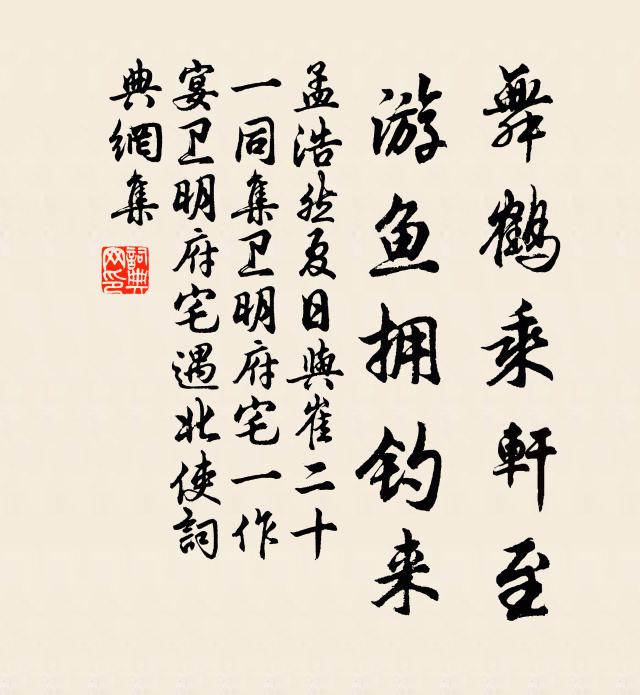 舞鶴乘軒至
游鱼拥钓来
孟浩然夏日與崔二十
一同集卫明府宅一作
宴卫明府宅遇北使詞
典網集
詞典
网印